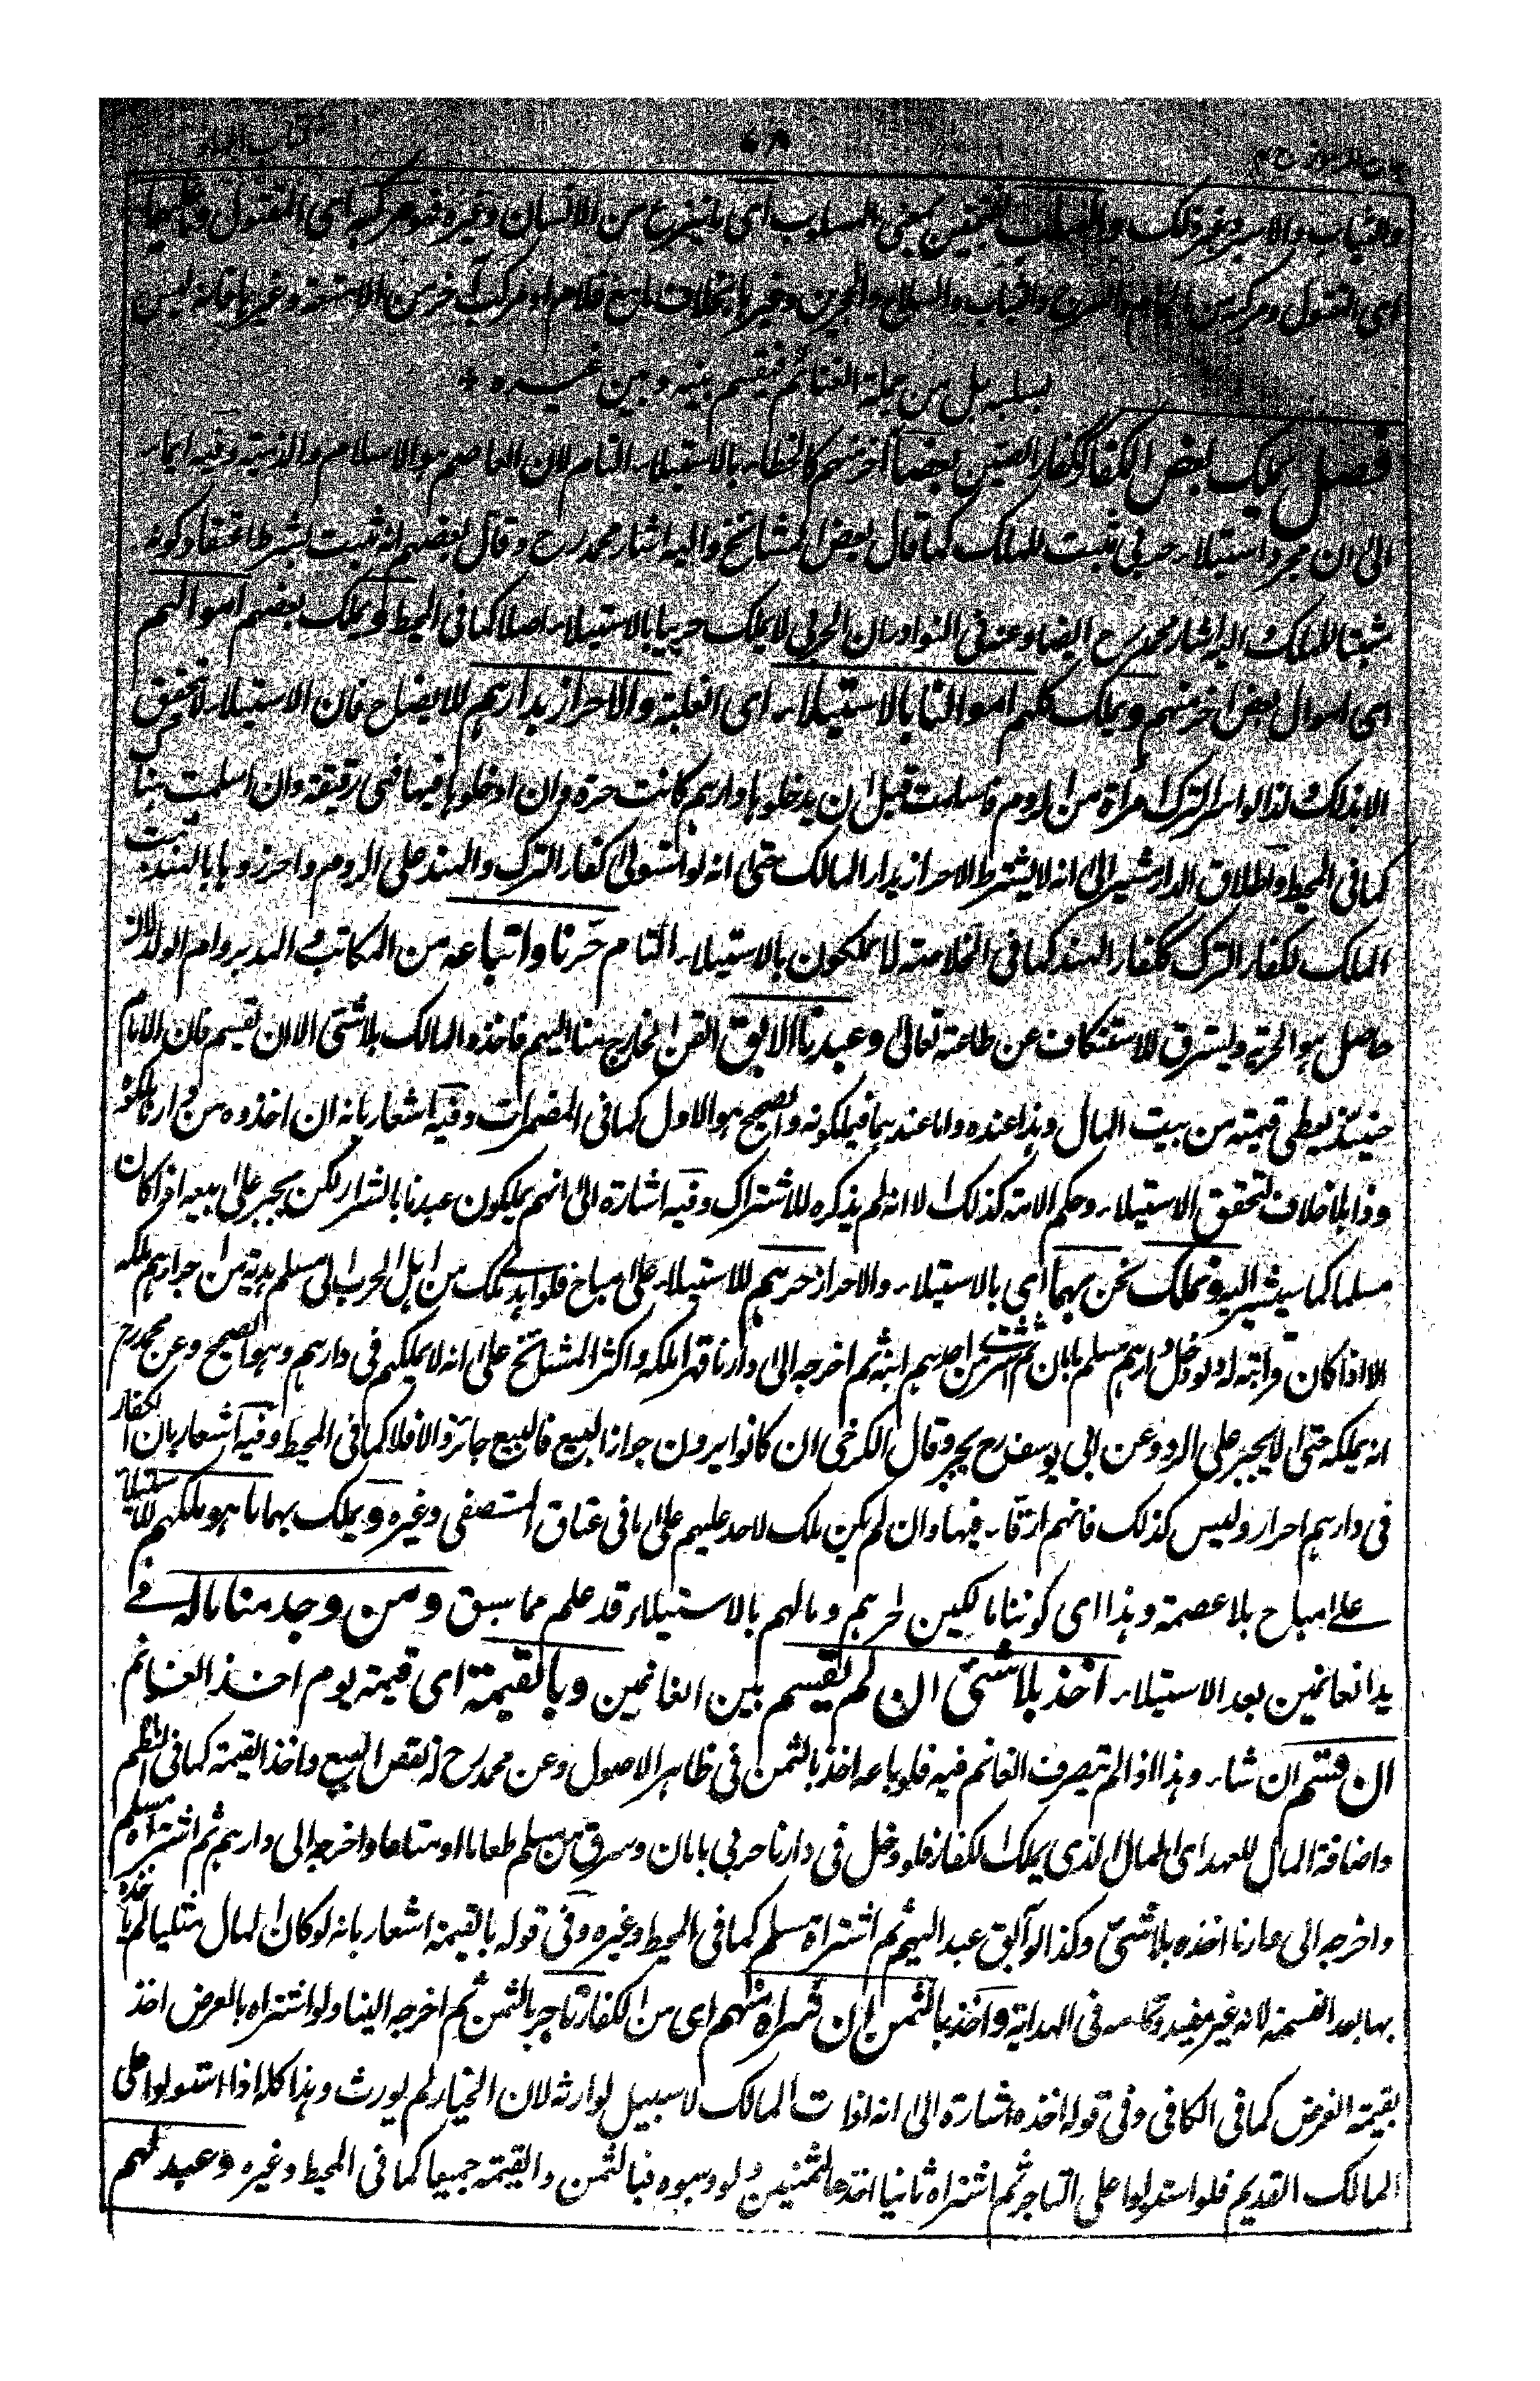 والثياب والاسر وغير ذلك والسلب بفتحتين بمعنى المسلوب اى ما ينزع من الانسان وغيره فهو مركبه اى المقتول وما عليهما
اى المقتول ومركبه من اللجام والسرج والثياب والسلاح وغيرها بخلاف ما مع غلام او مركب آخر من الامتعة وغيرها فانه ليس
بسلبه بل من جملة الغنائم فيقسم بينه وبين غيره
فصل يملك بعض الكفار كفار الصين بعضا آخر منهم كالخطاء بالاستيلاء التام لان العاصم هو الاسلام والذمية وفيه ايماء
الى ان مجرد استيلاء حربى مثبت للملك كما قال بعض المشائخ واليه اشار محمد رح وقال بعضهم انه مثبت بشرط اعتقاد كونه
مثبتا للملك واليه اشار محمد رح ايضا وعنه فى النوادر ان الحربى لا يملك حربيا بالاستيلاء اصلا كما فى المحيط ويملك بعضهم اموالهم
اى اموال بعض آخر منهم ويملك كلهم اموالنا بالاستيلاء اى الغلبة والاحراز بدارهم للايضاح فان الاستيلاء لا يتحقق
الا بذلك ولذا لو اسر الترك امرأة من الروم فاسلمت قبل ان يدخلوها دارهم كانت حرة وان ادخلوها فيها فهى رقيقة وان اسلمت هنا
كما فى المحيط واطلاق الدار مشير الى انه لا يشترط الاحراز بدار المالك حتى انه لو استولى كفار الترك والهند على الروم واحرزوها بالهند ثبت
الملك لكفار الترك ككفار الهند كما فى الخلاصة لا يملكون بالاستيلاء التام حرنا واتباعه من المكاتب والمدبر وام الولد لانه
حاصل هو الحرية ويسترق للاستنكاف عن طاعته تعالى وعبدنا الابق القن الخارج منا اليهم فاخذه المالك بلا شئ الا ان قسم فان الامام
حينئذ يعطى قيمته من بيت المال وهذا عنده واما عندهما فيملكونه والصحيح هو الاول كما فى المضمرات وفيه اشعار بانه ان اخذوه من دارنا ملكوه
وذا بلا خلاف لتحقق الاستيلاء وحكم الامة كذلك الا انه لم يذكره للاشتراك وفيه اشارة الى انهم يملكون عبدنا بالشراء لكن يجبر على بيعه اذا كان
مسلما كما سيشير اليه ونملك نحن بهما اى بالاستيلاء والاحراز حرهم للاستيلاء على مباح فلو اهدى ملك من اهل الحرب الى مسلم هدية من احرارهم ملكه
الا اذا كان قرابته له ولو دخل دارهم مسلم بامان ثم اشترى من احدهم ابنه ثم اخرجه الى دارنا قهرا ملكه واكثر المشائخ على انه لا يملكهم فى دارهم وهو الصحيح وعن محمد رح
انه يملكه حتى لا يجبر على الرد وعن ابى يوسف رح يجبر وقال الكرخى ان كانوا يرون جواز البيع فالبيع جائز والا فلا كما فى المحيط وفيه اشعار بان الكفار
فى دارهم احرار وليس كذلك فانهم ارقاء فيها وان لم يكن ملك لاحد عليهم على ما فى عتاق المستصفى وغيره ويملك بهما ما هو ملكهم للاستيلاء
على مباح بلا عصمة وهذا اى كوننا مالكين لحرهم ومالهم بالاستيلاء قد علم مما سبق ومن وجد منا ماله فى
يد الغانمين بعد الاستيلاء اخذ بلا شئ ان لم يقسم بين الغانمين وبالقيمة اى قيمته يوم اخذ الغانم
ان قسم ان شاء وهذا اذا لم يتصرف الغانم فيه فلو باعه اخذ بالثمن فى ظاهر الاصول وعن محمد رح له نقض البيع واخذ القيمة كما فى النظم
واضافة المال للعهد اى المال الذى يملك الكفار فلو دخل فى دارنا حربى بامان وسرق من مسلم طعاما او متاعا واخرجه الى دارهم ثم اشتراه مسلم
واخرجه الى دارنا اخذه بلا شئ وكذا لو آبق عبد اليهم ثم اشتراه مسلم كما فى المحيط وغيره وفى قوله بالقيمة اشعار بانه لو كان المال مثليا لم ياخذه
بها بعد القسمة لانه غير مفيد وتمامه فى الهداية واخذ بالثمن ان شراه منهم اى من الكفار تاجر بالثمن ثم اخرجه الينا ولو اشتراه بالعرض اخذ
بقيمة العرض كما فى الكافى وفى قوله اخذه اشارة الى انه اذا مات المالك لا سبيل لوارثه لان الخيار لم يورث وهذا كله اذا استولوا على
المالك القديم فلو استولوا على التاجر ثم اشتراه ثانيا اخذه بالثمنين ولو وهبوه فبالثمن والقيمة جميعا كما فى المحيط وغيره وعبد لهم